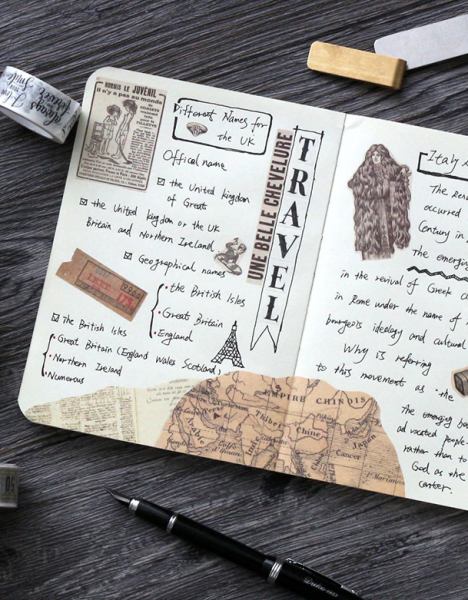 HORMIS LE JUVÉNIL
Il n'y a pas au monde
Different Names for
the UK
Offical name
the United kingdom
of Great
the United kingdom or the UK
Britain and Northern Ireland
Geographical names
the British Isles
Great Britain
England
the British Isles
Great Britain (England Wales Scotland)
Northern Ireland
Numerous
UNE BELLE CHEVELURE
TRAVEL
EMPIRE CHINOIS
Thibet
Chine
Japon
Cancer
Italy
The Rena
occurred
Century in
the emerging
in the revival of Greek
in Rome under the name of
bourgeois ideology and cultural
Why is referring
to this movement as "the
the emerging bou
advocated people
rather than to
God as the
center.
always
Smile